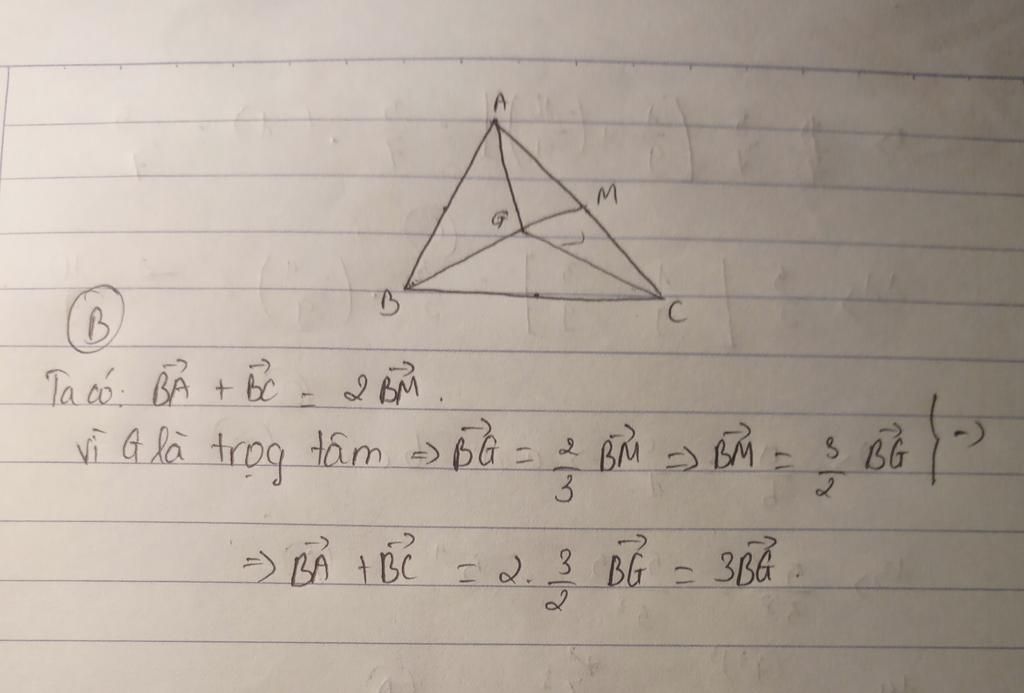 A
M
G
B
C
B
Ta có: BA⃗ + BC⃗ = 2 BM⃗.
vì G là trọg tâm => BG⃗ = 2/3 BM⃗ => BM⃗ = 3/2 BG⃗ } =>
=> BA⃗ + BC⃗ = 2. 3/2 BG⃗ = 3BG⃗.